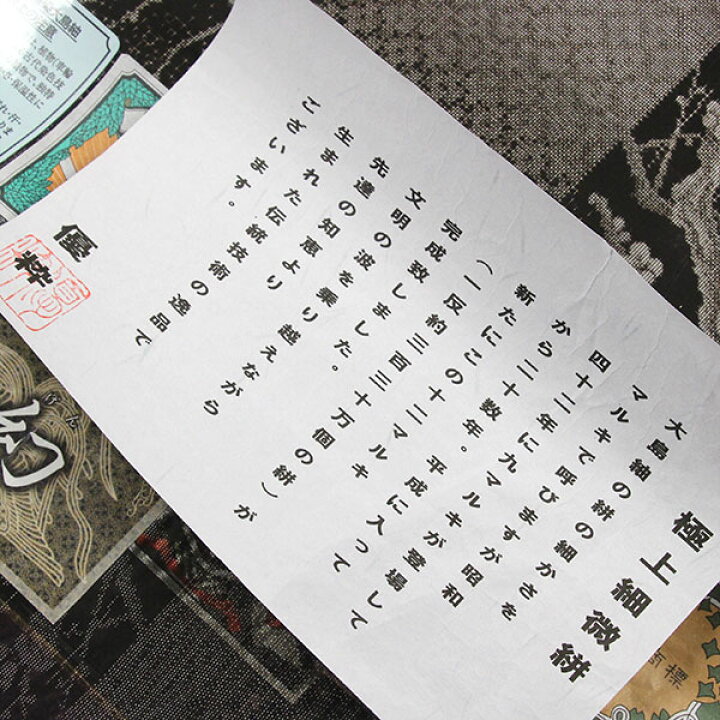 極上細微絣
大島紬の絣の細かさを
マルキで呼びますが昭和
四十二年に九マルキが登場して
から二十数年。平成に入って
新たにこの十二マルキ
(一反約三百三十万個の絣)が
完成致しました。
文明の波を乗り越えながら
先達の知恵より
生まれた伝統技術の逸品で
ございます。
優粋
島紬
植物(車輪
古代染色技
物で、独特
さ・保温性に
幻
げん
商標